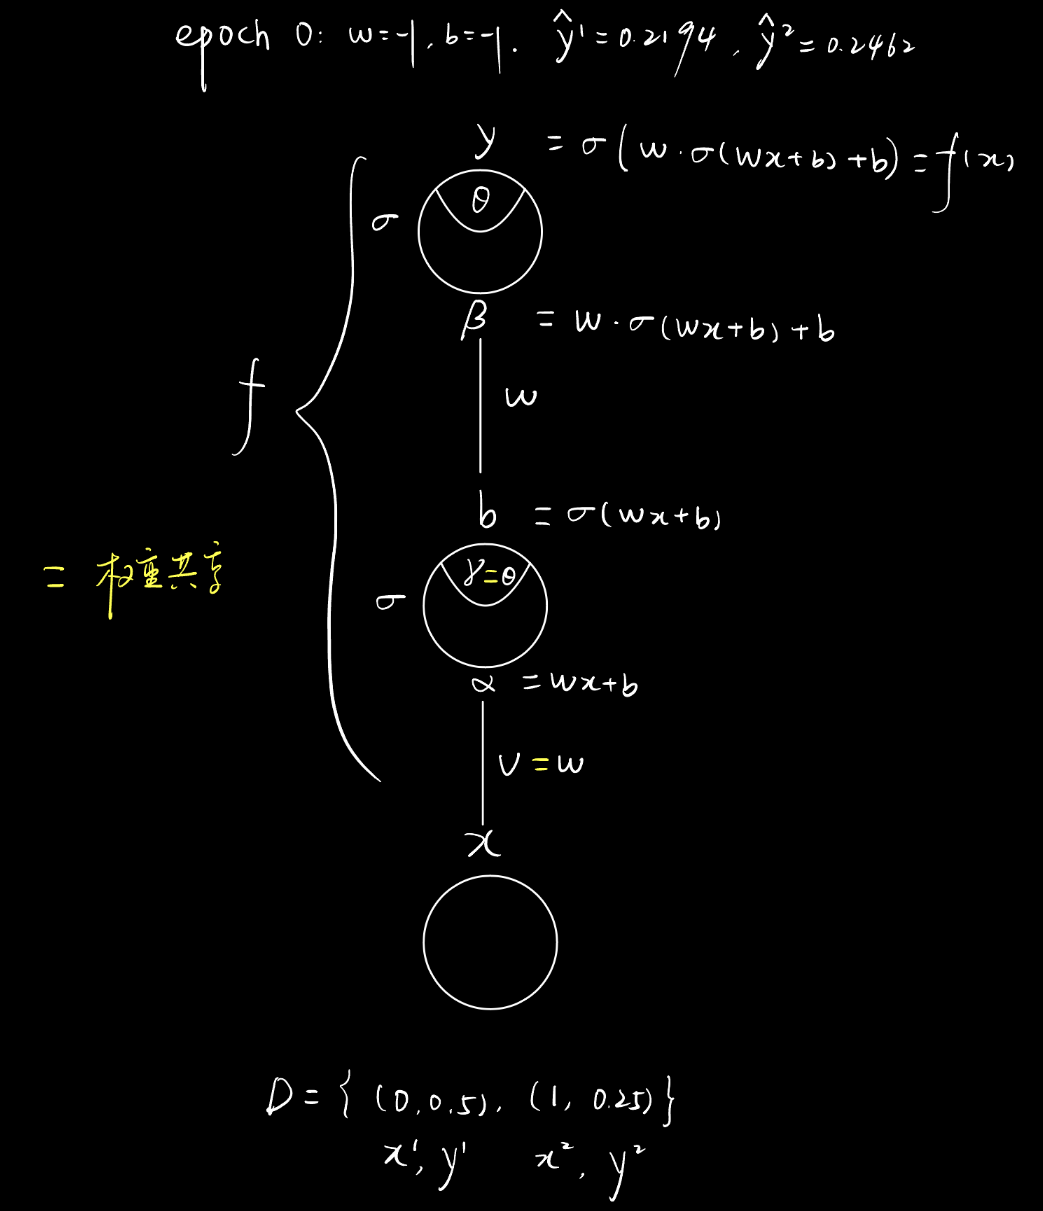 epoch 0: w=-1, b=-1. ŷ¹=0.2194, ŷ²=0.2462
y = σ(w·σ(wx+b)+b)=f(x)
θ
σ
β = w·σ(wx+b)+b
f
w
b = σ(wx+b)
= 权重共享
γ=θ
σ
α = wx+b
v=w
x
D={(0,0.5), (1, 0.25)}
x¹, y¹ x², y²